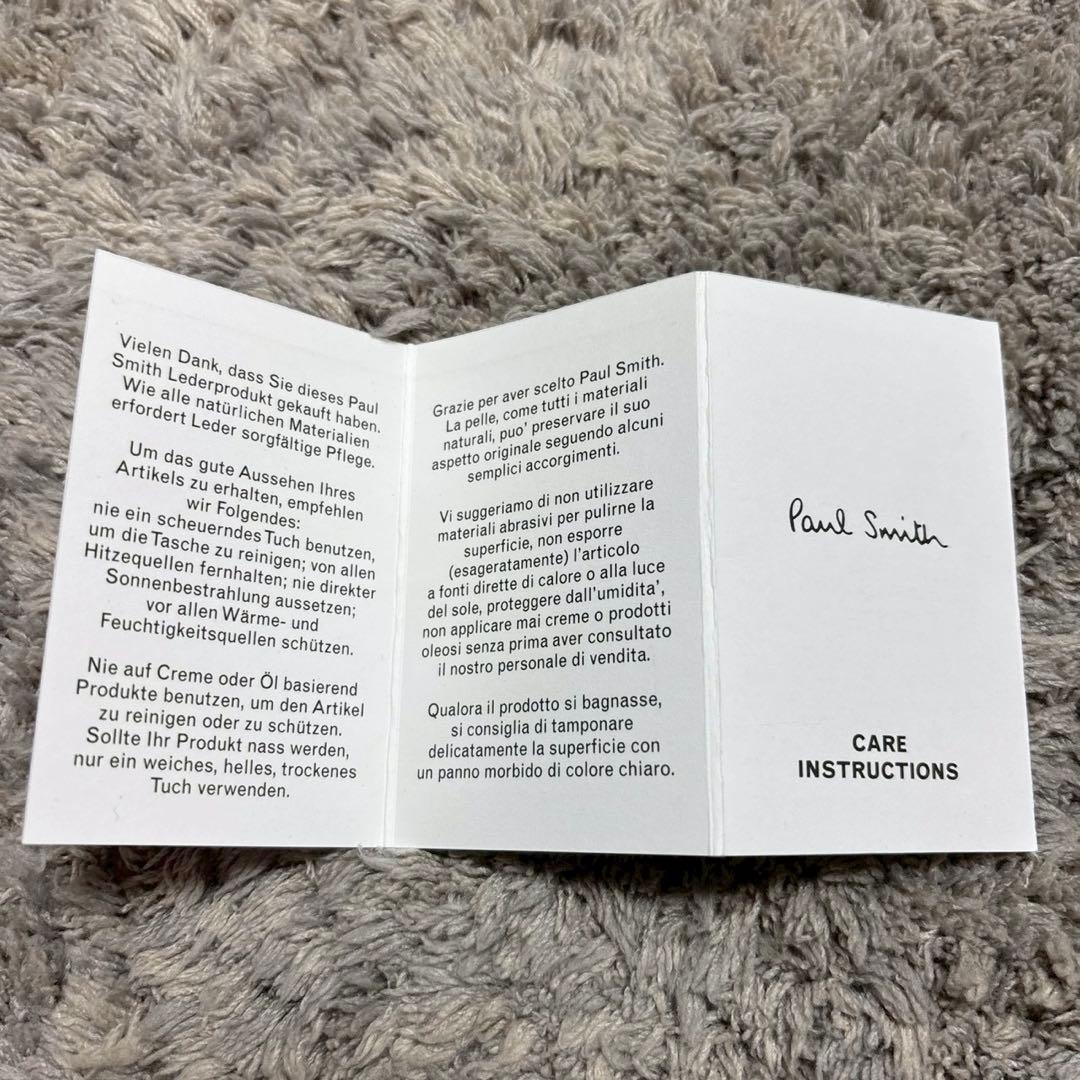 Vielen Dank, dass Sie dieses Paul
Smith Lederprodukt gekauft haben.
Wie alle natürlichen Materialien
erfordert Leder sorgfältige Pflege.
Um das gute Aussehen Ihres
Artikels zu erhalten, empfehlen
wir Folgendes:
nie ein scheuerndes Tuch benutzen,
um die Tasche zu reinigen; von allen
Hitzequellen fernhalten; nie direkter
Sonnenbestrahlung aussetzen;
vor allen Wärme- und
Feuchtigkeitsquellen schützen.
Nie auf Creme oder Öl basierend
Produkte benutzen, um den Artikel
zu reinigen oder zu schützen.
Sollte Ihr Produkt nass werden,
nur ein weiches, helles, trockenes
Tuch verwenden.
Grazie per aver scelto Paul Smith.
La pelle, come tutti i materiali
naturali, puo' preservare il suo
aspetto originale seguendo alcuni
semplici accorgimenti.
Vi suggeriamo di non utilizzare
materiali abrasivi per pulirne la
superficie, non esporre
(esageratamente) l'articolo
a fonti dirette di calore o alla luce
del sole, proteggere dall'umidita',
non applicare mai creme o prodotti
oleosi senza prima aver consultato
il nostro personale di vendita.
Qualora il prodotto si bagnasse,
si consiglia di tamponare
delicatamente la superficie con
un panno morbido di colore chiaro.
Paul Smith
CARE
INSTRUCTIONS